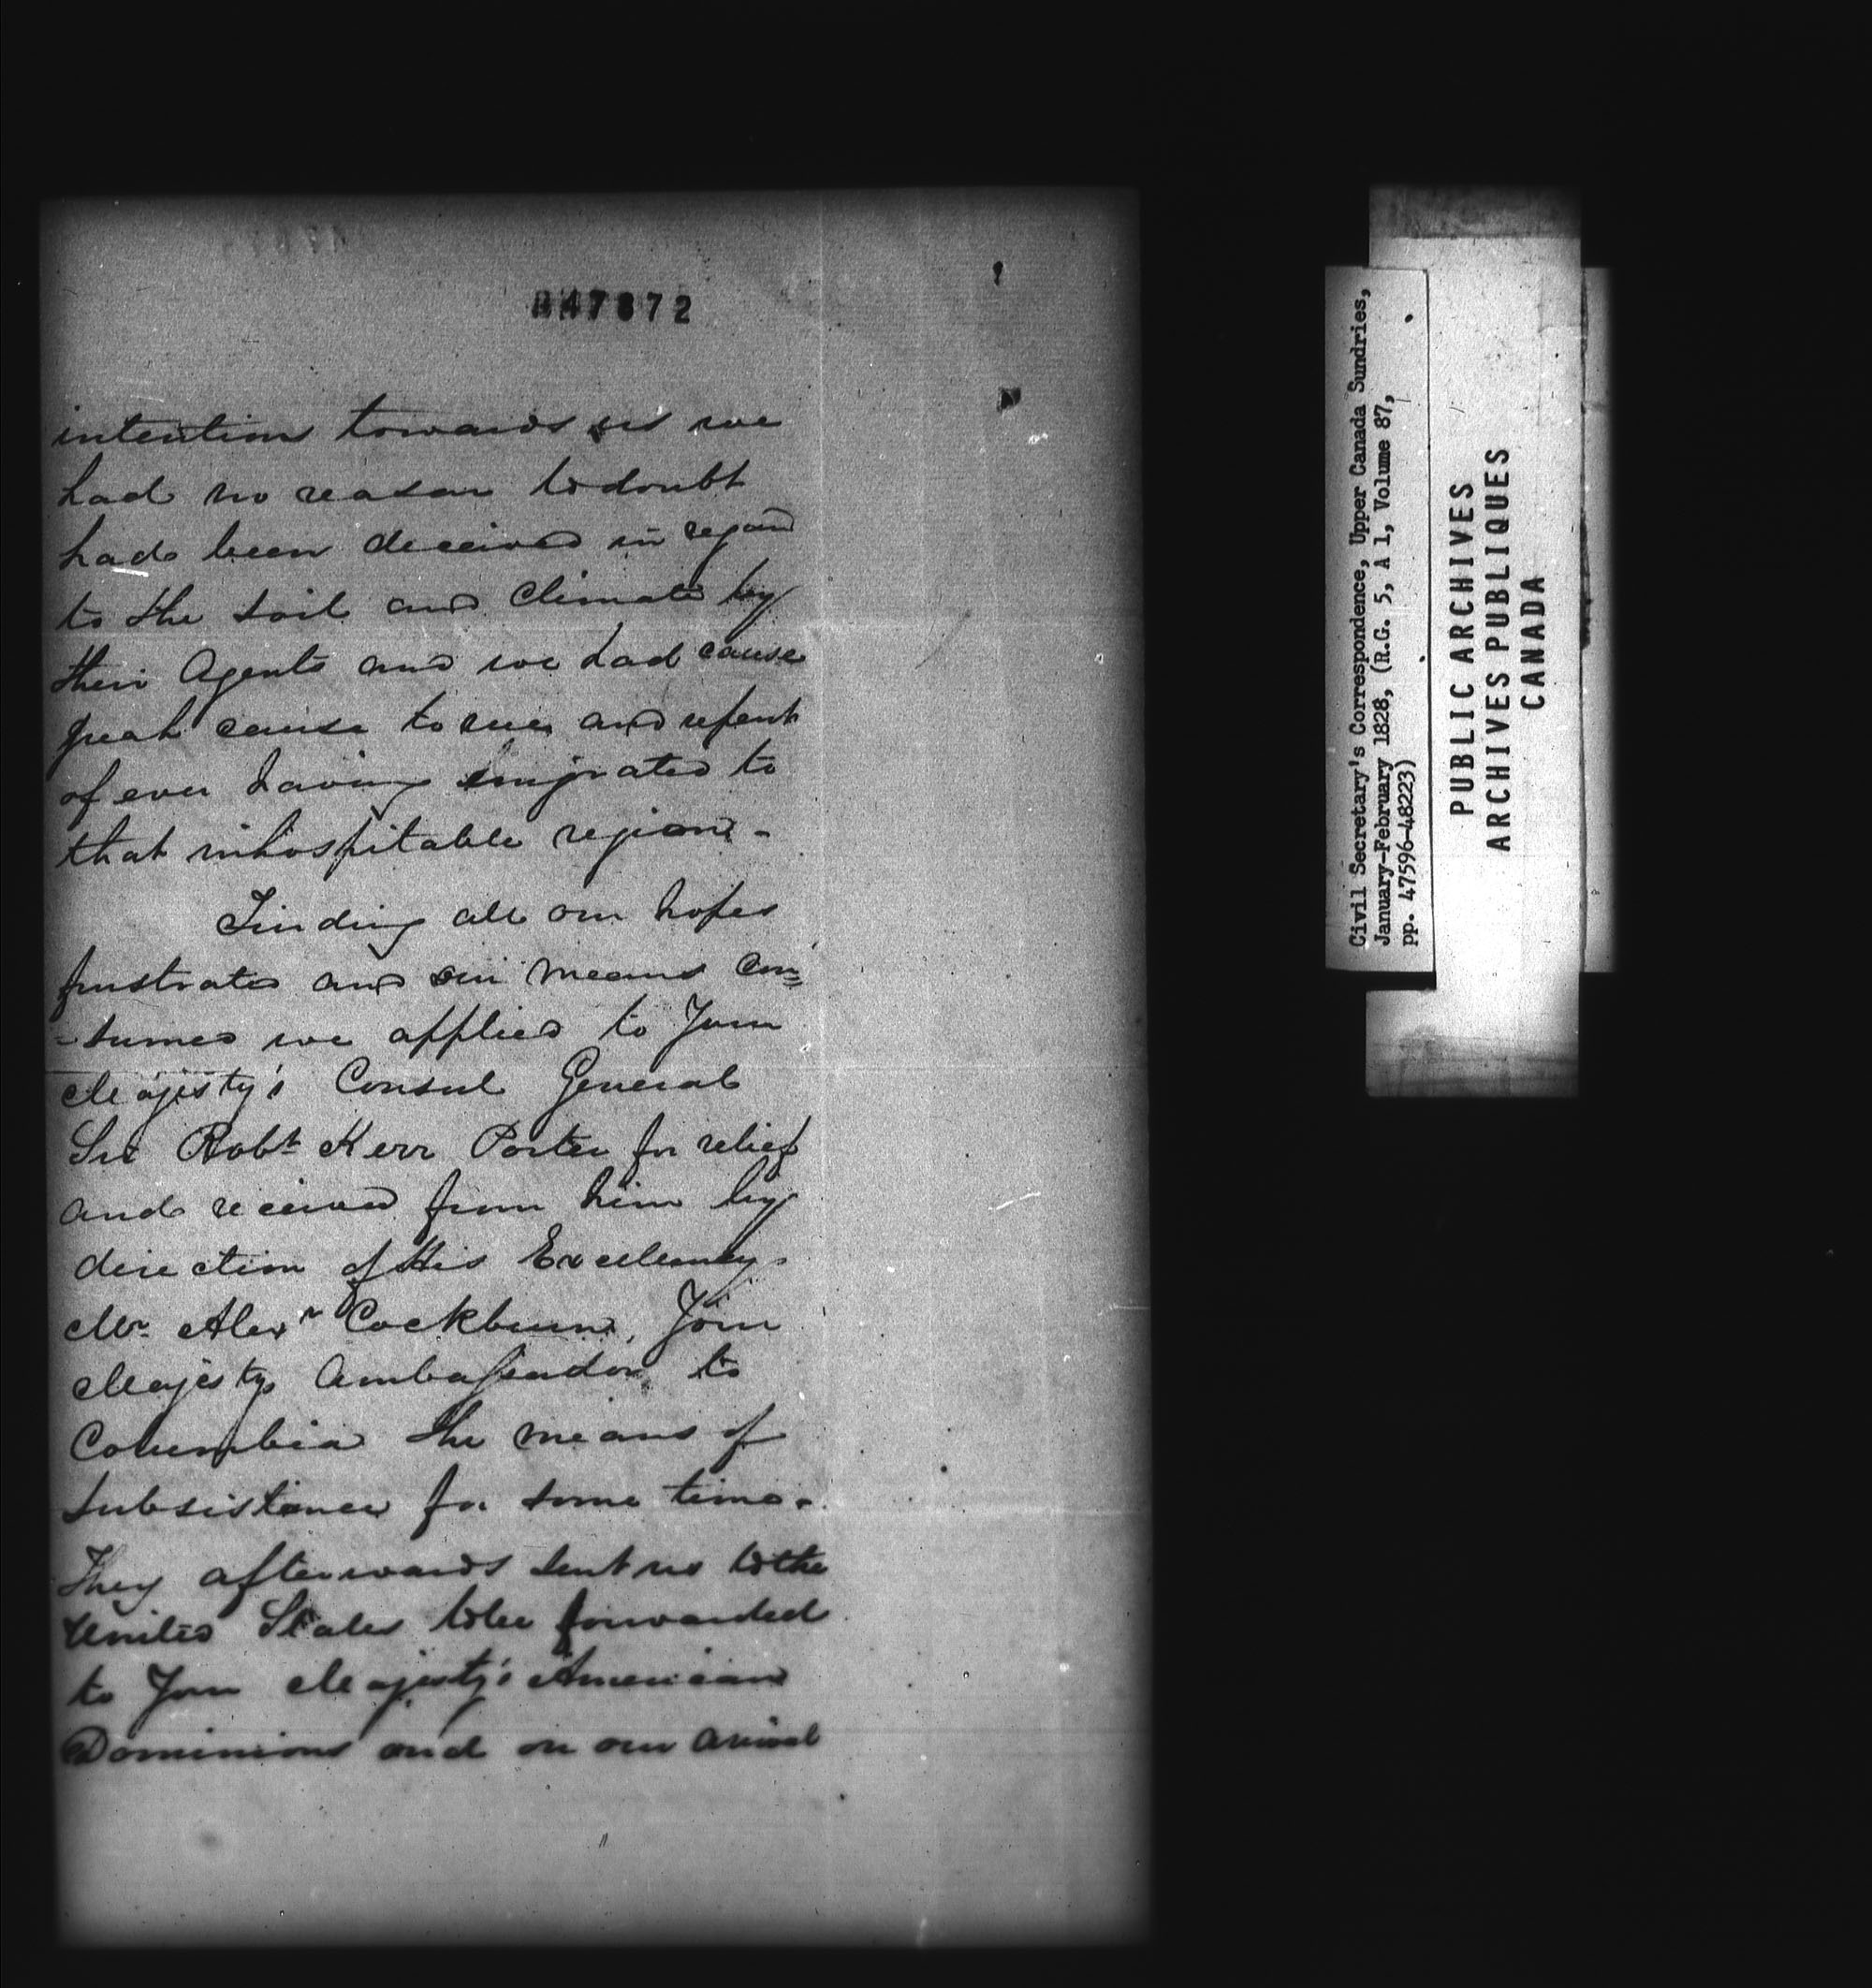 47872
intention towards us we
had no reason to doubt
had been deceived in regard
to the soil and Climate by
their Agents and we had cause
great cause to rue and repent
of ever having emigrated to
that inhospitable region -
Finding all our hopes
frustrated and our means con=
=sumed we applied to Your
Majesty's Consul General
Sir Robt Kerr Porter for relief
and received from him by
direction of His Excellency
Mr. Alexr Cockburn, Your
Majestys Ambassador to
Columbia the means of
Subsistance for some time.
They afterwards sent us to the
United States to be forwarded
to Your Majesty's American
Dominions and on our arrival
Civil Secretary's Correspondence, Upper Canada Sundries,
January-February 1828, (R.G. 5, A 1, Volume 87,
pp. 47596-48223)
PUBLIC ARCHIVES
ARCHIVES PUBLIQUES
CANADA